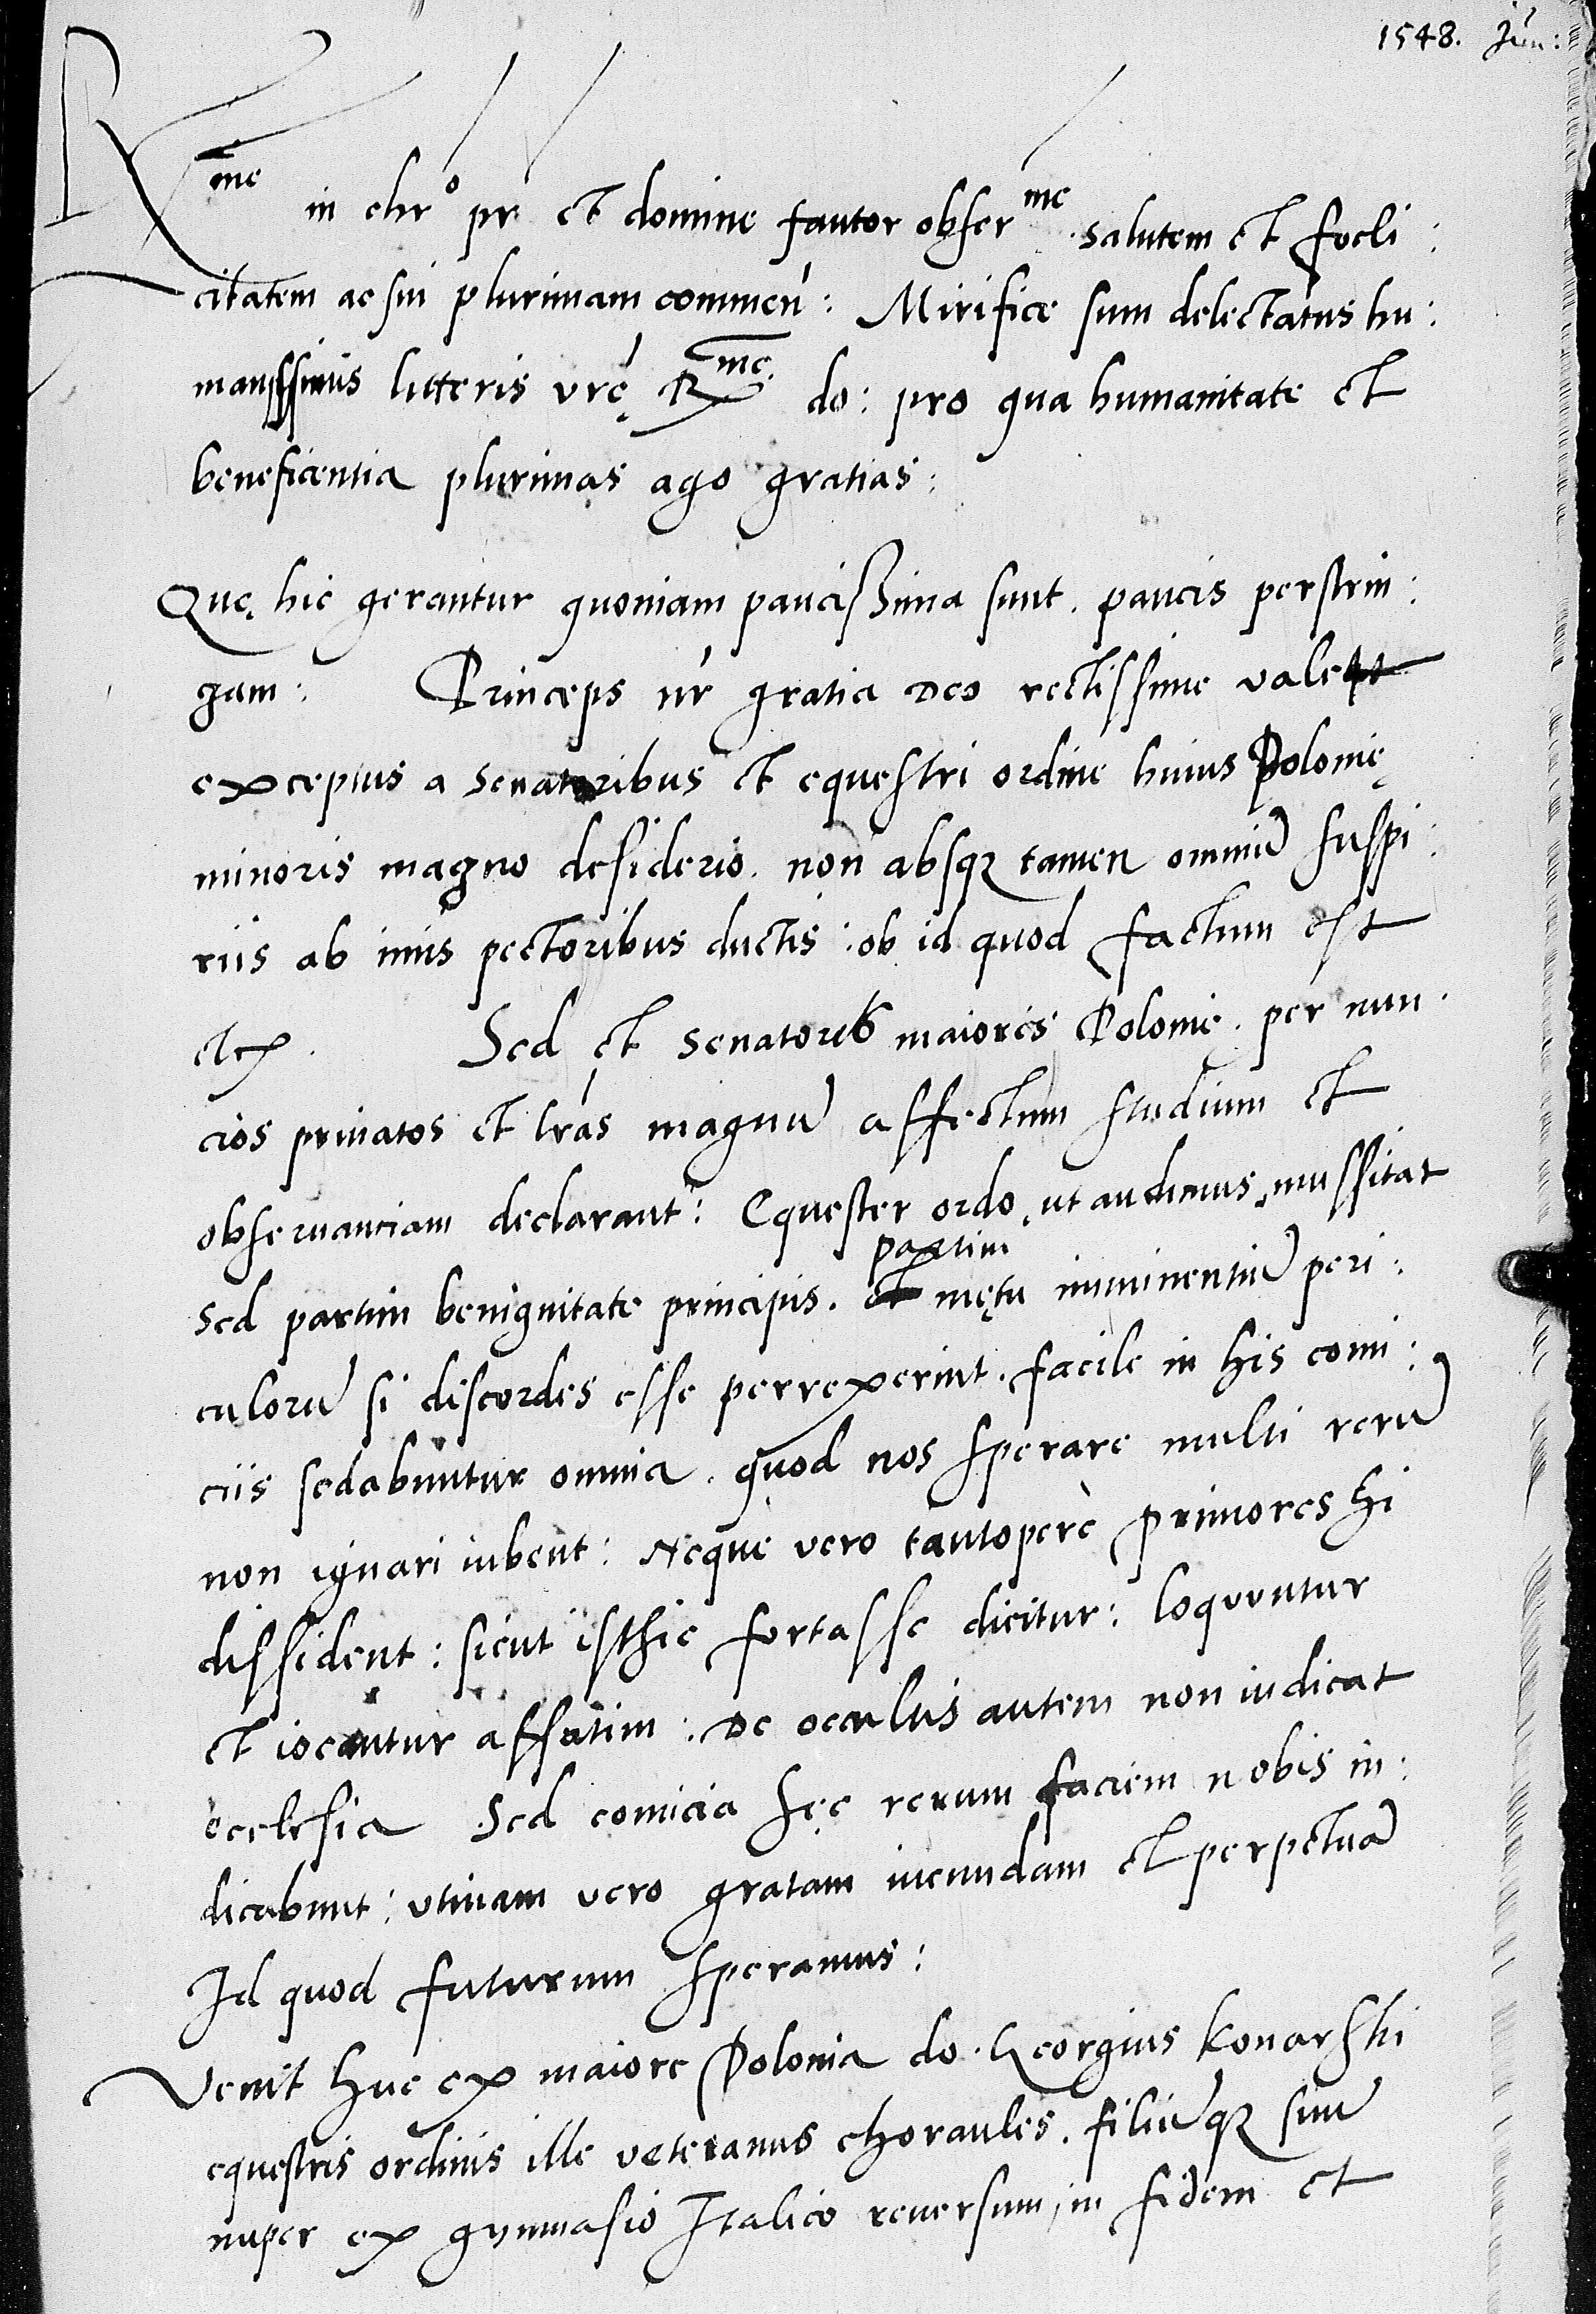 1548. Jun:
Rme in chro pr et domine fautor obserme salutem et foeli:
citatem ac sui plurimam commen: Mirifice sum delectatus hu:
manissimis litteris vrę Rme. do: pro qua humanitate et
beneficentia plurimas ago gratias:
Quę hic gerantur quoniam paucißima sunt. paucis perstrin:
gam: Princeps nr gratia Deo rectissime valet
exceptus a senatoribus et equestri ordine huius Polonię
minoris magno desiderio. non absq tamen omniū suspi:
riis ab imis pectoribus ductis: ob id quod factum est
etc. Sed et senatores maioris Polonię. per nun:
cios priuatos et lras magnū affectum studium et
obseruanciam declarant: Equester ordo, ut audimus, mussitat
partim
sed partim benignitate principis. et mętu imminentiū peri:
culorū si discordes esse perrexerint. facile in his comi:
ciis sedabuntur omnia. quod nos sperare multi rerū
non ignari iubent: Neque vero tantoperè primores hi
dissident: sicut isthic fortasse dicitur: loquuntur
et iocantur affatim: De occultis autem non iudicat
ecclesia Sed comicia hęc rerum faciem nobis in:
dicabunt: utinam vero gratam iucundam et perpetuā
Id quod futurum speramus:
Venit huc ex maiore Polonia do. Georgius Konarski
equestris ordinis ille veteranus choraules. filiūq suū
nuper ex gymnasio Italico reuersum, in fidem et